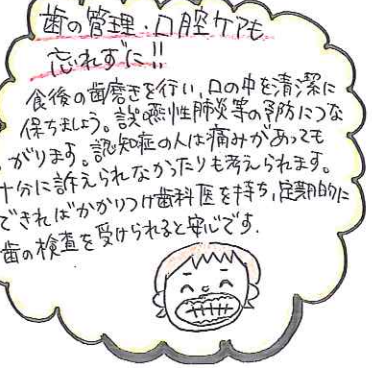 歯の管理・口腔ケアも
忘れずに!!
食後の歯磨きを行い、口の中を清潔に
保ちましょう。誤嚥性肺炎等の予防につな
がります。認知症の人は痛みがあっても
十分に訴えられなかったりも考えられます。
できればかかりつけ歯科医を持ち、定期的に
歯の検査を受けられると安心です.